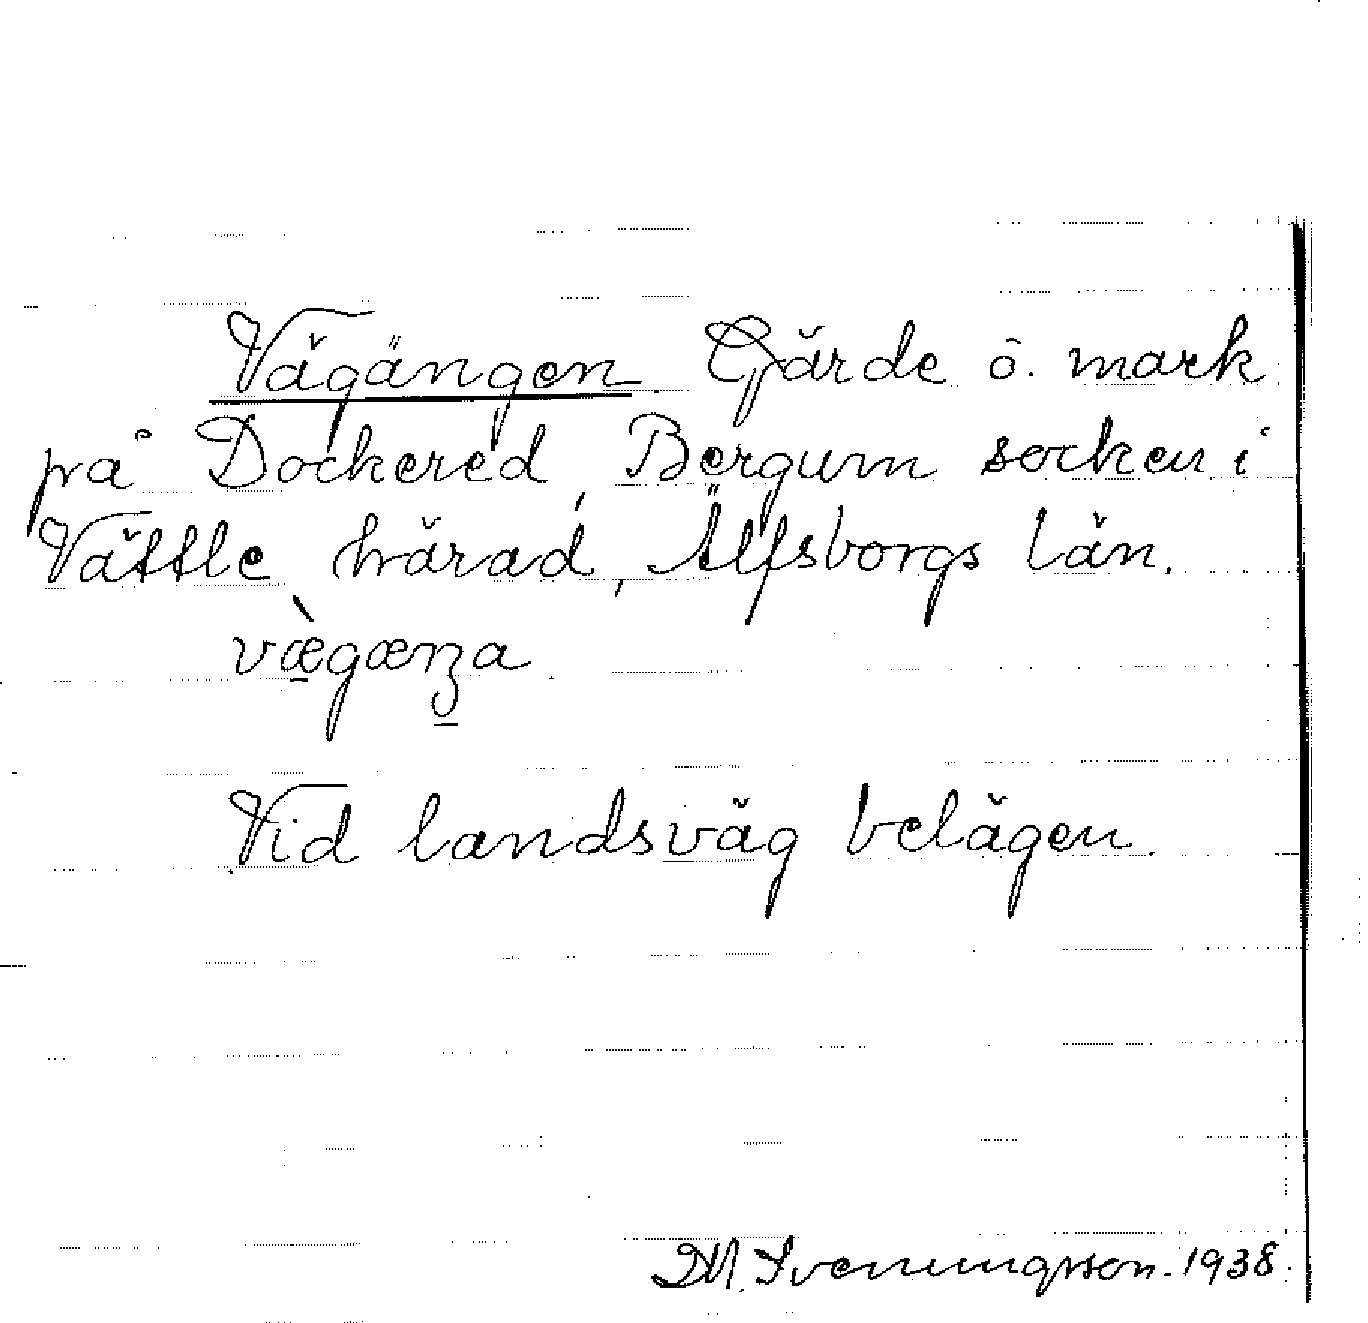 Vägängen Gärde o. mark
på Dockered, Bergum socken i
Vättle härad, Älfsborgs län.
væ̀gæŋa
Vid landsväg belägen.
D.M. Svenningsson. 1938.